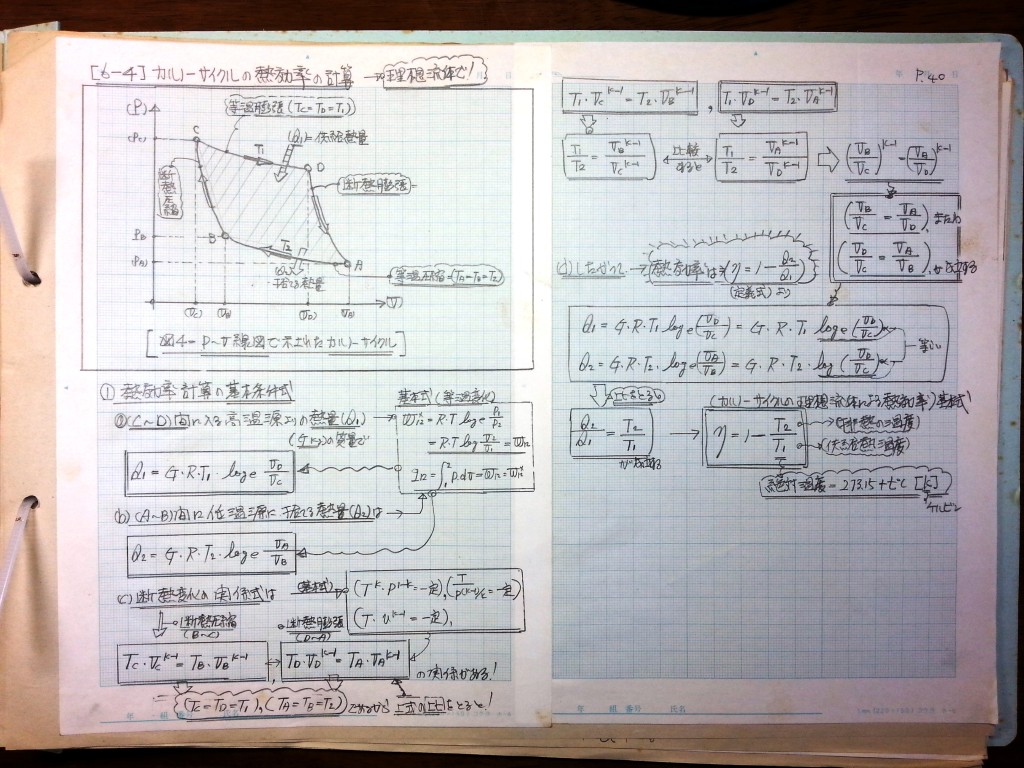 [6-4] カルノーサイクルの熱効率の計算 → 理想流体で!
(P)
等温膨張 (Tc = TD = T1)
(Q1) = 供給熱量
(Pc)
C
T1
D
断熱圧縮
断熱膨張
PB
B
T2
A
PA
(Q2)
捨てる熱量
等温圧縮 = (TA = TB = T2)
(Vc) (VB) (VD) (VA)
(V)
[図4 = P~V線図で示されたカルノーサイクル]
① 熱効率計算の基本条件式
(a) (C~D)間に入る高温源よりの熱量(Q1)
(G kg)の質量で
Q1 = G・R・T1・loge VD/Vc
基本式 (等温変化)
W12 = R・T loge P1/P2
= R・T loge V2/V1 = W12
q12 = ∫₁² P.dv = W12 = W12
(b) (A~B)間に低温源に捨てる熱量(Q2)は
Q2 = G・R・T2・loge VA/VB
(c) 断熱変化の関係式は
(基本式)
(T^k・P^1-k = 一定), (T/P^(k-1)/k = 一定)
(T・v^k-1 = 一定),
断熱圧縮
(B~C)
断熱膨張
(D~A)
Tc・Vc^k-1 = TB・VB^k-1
TD・VD^k-1 = TA・VA^k-1
の関係がある!
(Tc = TD = T1), (TA = TB = T2) であるから 上式の比をとると!
年 組 番号 氏名
P.40
T1・Vc^k-1 = T2・VB^k-1 , T1・VD^k-1 = T2・VA^k-1
T1/T2 = VB^k-1/Vc^k-1
比較すると
T1/T2 = VA^k-1/VD^k-1
(VB/Vc)^k-1 = (VA/VD)^k-1
(VB/Vc = VA/VD), または
(VD/Vc = VA/VB), が成立する
(d) したがって → 熱効率は (η = 1 - Q2/Q1)
(定義式) より
Q1 = G・R・T1 loge(VD/Vc) = G・R・T1 loge(VD/Vc)
Q2 = G・R・T2・loge(VA/VB) = G・R・T2・loge(VD/Vc)
等しい
比をとると
Q2/Q1 = T2/T1
が成立する
(カルノーサイクルの理想流体による熱効率) 基本式
η = 1 - T2/T1
(排熱の温度)
(供給熱の温度)
絶対温度 = 273.15 + t℃ [K]
ケルビン
年 組 番号 氏名